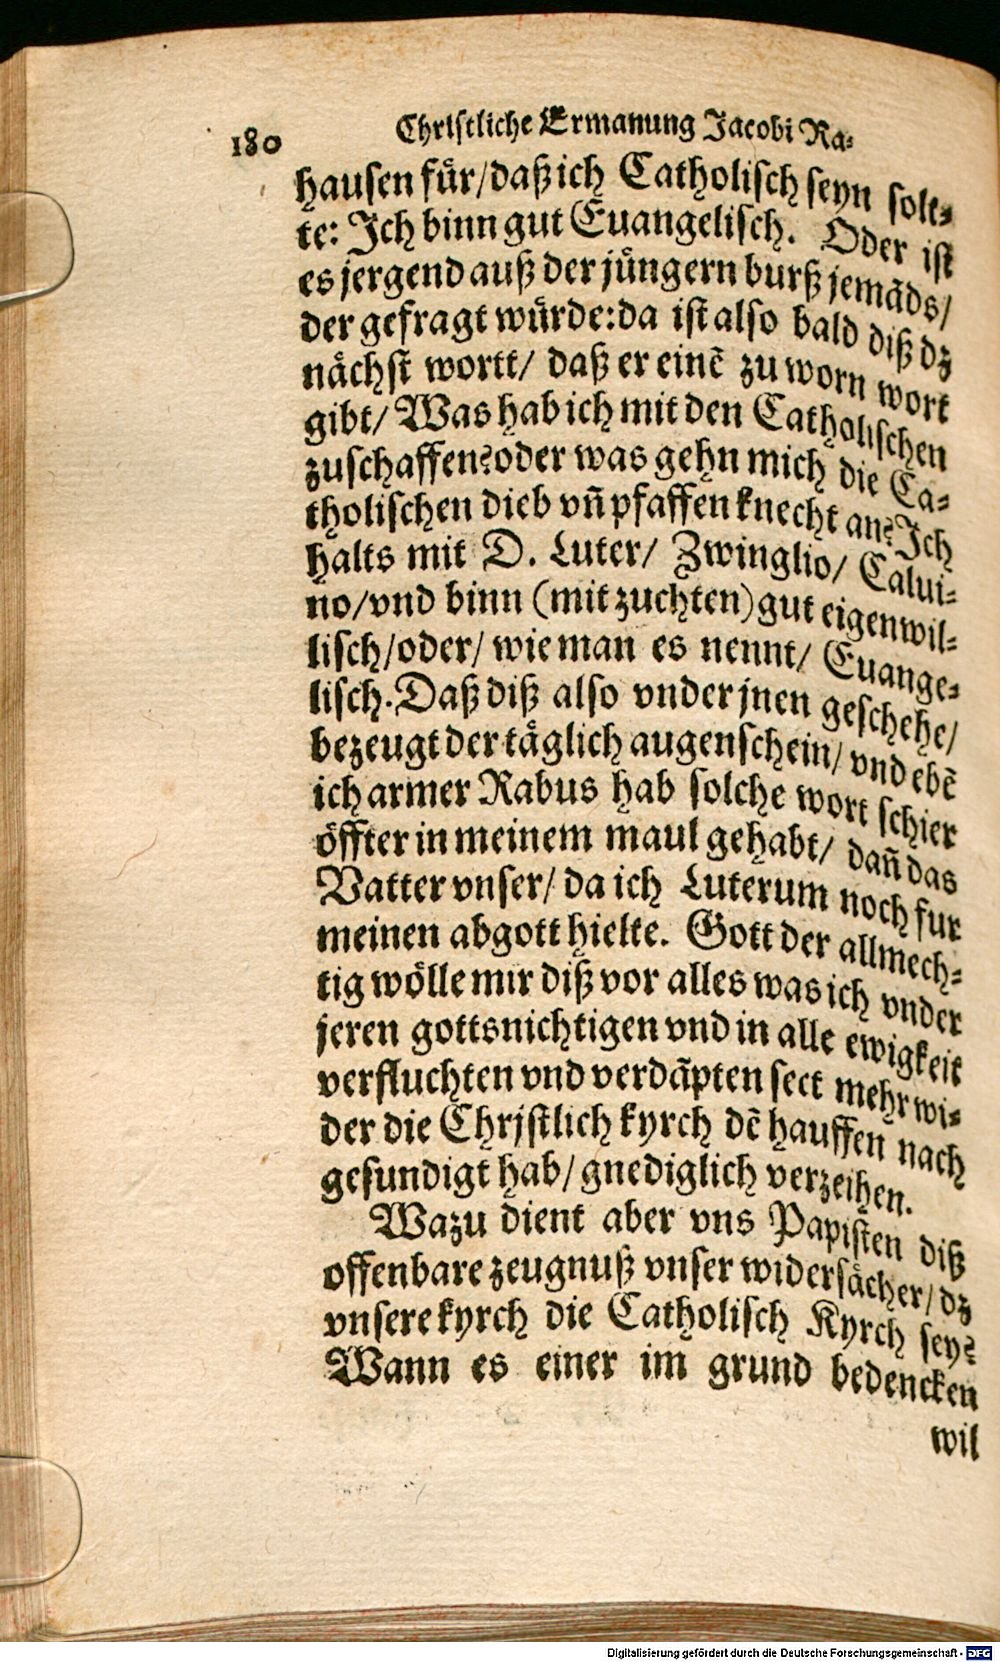 180 Christliche Ermanung Jacobi Ra-
hausen für/daß ich Catholisch seyn soll-
te: Ich binn gut Euangelisch. Oder ist
es jergend auß der jüngern burß jemāds/
der gefragt würde:da ist also bald diß dz
nächst wortt/ daß er einē zu worn wort
gibt/ Was hab ich mit den Catholischen
zuschaffen?oder was gehn mich die Ca-
tholischen dieb vn̄ pfaffen knecht an? Ich
halts mit D. Luter/ Zwinglio/ Calui-
no/vnd binn (mit zuchten) gut eigenwil-
lisch/oder/ wie man es nennt/ Euange-
lisch. Daß diß also vnder jnen geschehe/
bezeugt der täglich augenschein/ vnd ebē
ich armer Rabus hab solche wort schier
öffter in meinem maul gehabt/ dan̄ das
Vatter vnser/ da ich Luterum noch fur
meinen abgott hielte. Gott der allmech-
tig wölle mir diß vor alles was ich vnder
jeren gottsnichtigen vnd in alle ewigkeit
verfluchten vnd verdāpten sect mehr wi-
der die Chrjstlich kyrch dē hauffen nach
gesundigt hab/ gnediglich verzeihen.
Wazu dient aber vns Papisten diß
offenbare zeugnuß vnser widersächer/ dz
vnsere kyrch die Catholisch Kyrch sey?
Wann es einer im grund bedencken
wil
Digitalisierung gefördert durch die Deutsche Forschungsgemeinschaft - DFG